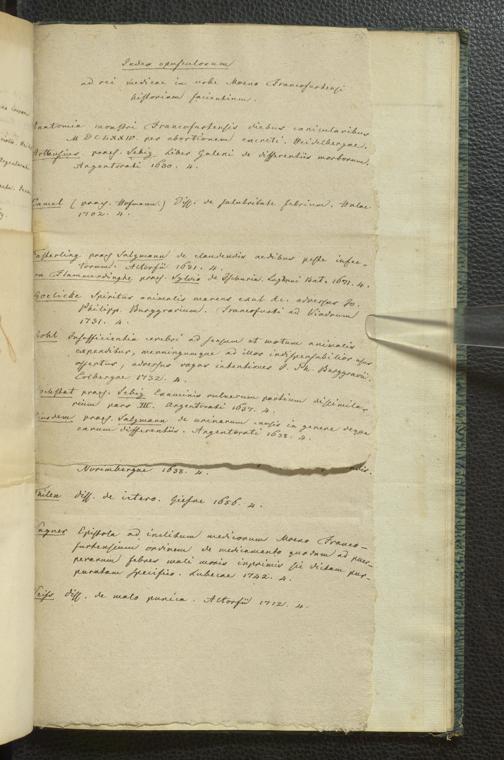 Index opusculorum
ad rei medicae in urbe Moeno Francofurtensi
historiam facientium.
Anatomia monstri Francofurtensis diebus canicularibus
M DC LXXIV. per abortionem excreti. Heidelbergae.
praes. Sebiz Liber Galeni de differentiis morborum.
Argentorati 1630. 4.
(praes. Hofmann.) Diss. de salubritate febrium. Halae
1702. 4.
praes. Salzmann de claudendis aedibus peste infec-
torum. Altorfii 1621. 4.
praes. Sylvio de Lugduni Bat. 1671. 4.
Goelicke Spiritus animalis merens exul &c. adversus Jo.
Philipp. Burggravium. Francofurti ad Viadrum
1731. 4.
Insufficientia cerebri ad sensum et motum animalis
expendibus, meningumque ad illos indispensabilior usus
assertus, adversus vagas intentiones J. Ph. Burggravii.
Colbergae 1732. 4.
praes. Sebiz Examinis vulnerum partium dissimilar
rium pars III. Argentorati 1637. 4.
praes. Salzmann de urinarum in genere deque
earum differentiis. Argentorati 1638. 4.
Norimbergae 1638. 4.
Diss. de ictero. Giessae 1656. 4.
Wagner Epistola ad inclitum medicorum Moeno Franco-
furtensium ordinem de medicamento quodam ad puer-
perarum febres mali moris inprimis sic dictam pur-
puratam specifico. Lubecae 1742. 4.
Weiss Diss. de malo punica. Altorfii 1712. 4.